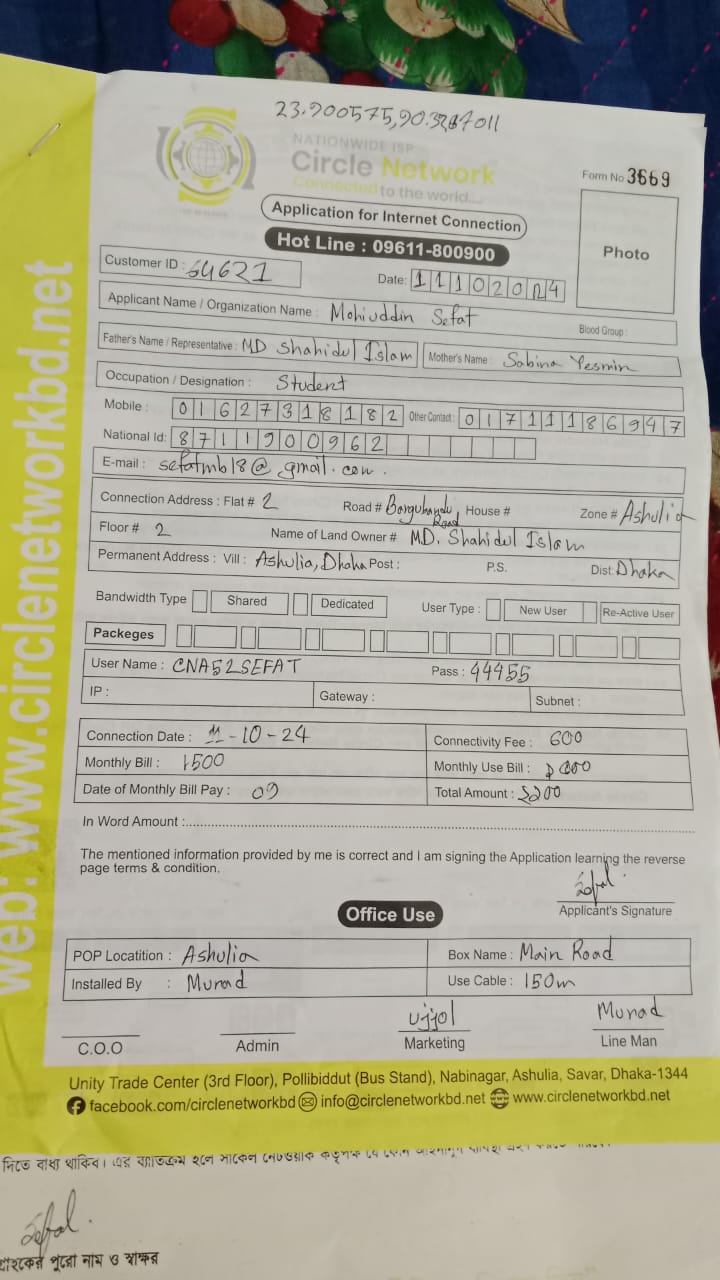 23.900575,90.3267011
NATIONWIDE ISP
Circle Network
Connected to the world....
Form No 3669
Application for Internet Connection
Hot Line : 09611-800900
Photo
Customer ID : 64621
Date: 11102024
Applicant Name / Organization Name : Mohiuddin Sefat
Blood Group :
Father's Name / Representative : MD Shahidul Islam Mother's Name : Sabina Yesmin
Occupation / Designation : Student
Mobile : 01627318182 Other Contact : 01711186947
National Id: 8711900962
E-mail : sefatmb18@gmail.com.
Connection Address : Flat # 2 Road # Road House # Zone # Ashulia
Floor # 2 Name of Land Owner # MD. Shahidul Islam
Permanent Address : Vill : Ashulia, Dhaka Post : P.S. Dist: Dhaka
Bandwidth Type Shared Dedicated User Type : New User Re-Active User
Packeges
User Name : CNA52SEFAT Pass : 44455
IP : Gateway : Subnet :
Connection Date : 11-10-24 Connectivity Fee : 600
Monthly Bill : 1500 Monthly Use Bill :
Date of Monthly Bill Pay : 09 Total Amount :
In Word Amount :
The mentioned information provided by me is correct and I am signing the Application learning the reverse
page terms & condition.
Sefat
Applicant's Signature
Office Use
POP Locatition : Ashulia Box Name : Main Road
Installed By : Murad Use Cable : 150m
ujjol Murad
C.O.O Admin Marketing Line Man
Unity Trade Center (3rd Floor), Pollibiddut (Bus Stand), Nabinagar, Ashulia, Savar, Dhaka-1344
facebook.com/circlenetworkbd info@circlenetworkbd.net www.circlenetworkbd.net
web: www.circlenetworkbd.net
দিতে বাধ্য থাকিব। এর ব্যতিক্রম হলে সার্কেল নেটওয়ার্ক কর্তৃপক্ষ যে কোন
Sefat.
গ্রাহকের পুরো নাম ও স্বাক্ষর